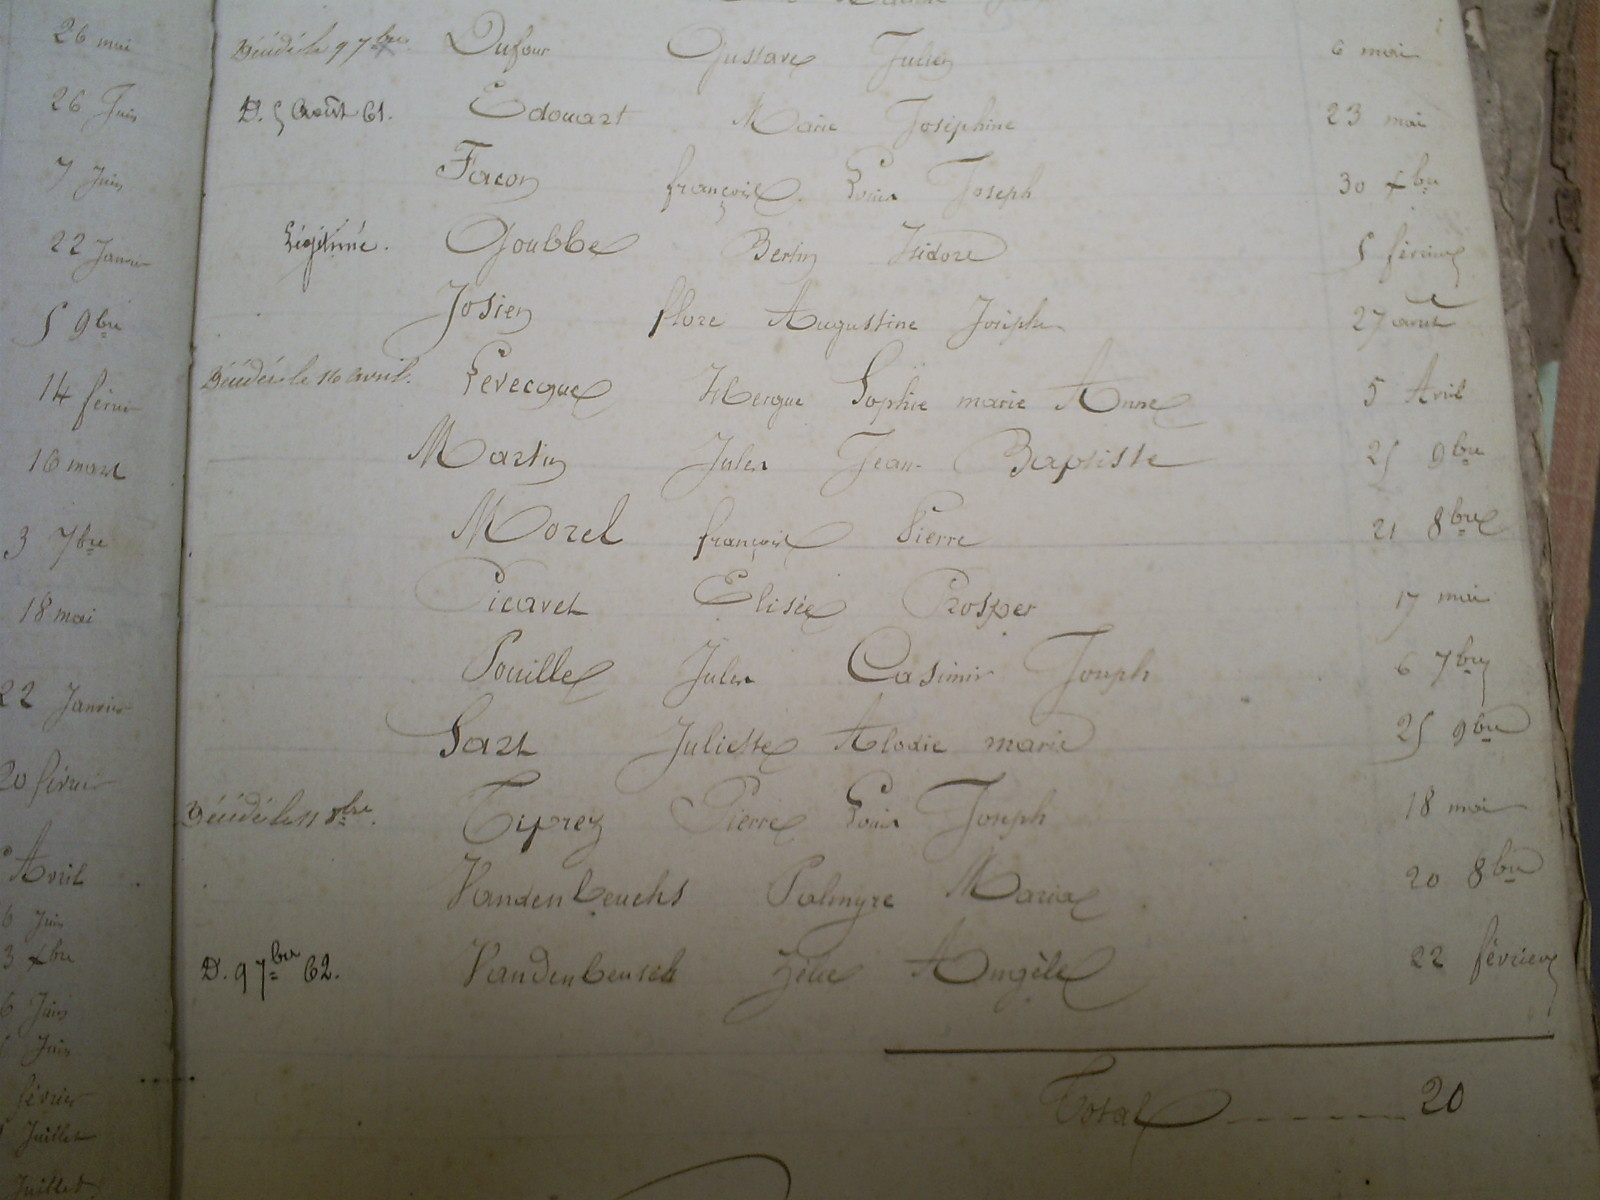 26 mai
26 Juin
7 Juin
22 Janvier
5 9bre
14 février
16 mars
3 7bre
18 mai
22 Janvier
20 février
Avril
6 Juin
3 xbre
6 Juin
Juin
février
Juillet
Juillet
Décédé le 9 7bre Dufour Gustave Julien 6 mai
D. 5 Août 61. Edouart Marie Joséphine 23 mai
Facon françois Louis Joseph 30 xbre
Légitimé. Goubbe Bertin Isidore 5 février
Josien flore Augustine Josèphe 27 août
Décédée le 16 avril. Levecque Sophie marie Anne 5 Avril
Martin Jules Jean-Baptiste 25 9bre
Morel françois Pierre 21 8bre
Picavet Elisée Prosper 17 mai
Pouille Jules Casimir Joseph 6 7bre
Sart Juliette Alodie marie 25 9bre
Décédé le 11 8bre. Tiprez Pierre Louis Joseph 18 mai
Vandenbeuchs Palmyre Maria 20 8bre
D. 9 7bre 62. Vandenbeusch Zélie Angèle 22 février
Total ------ 20